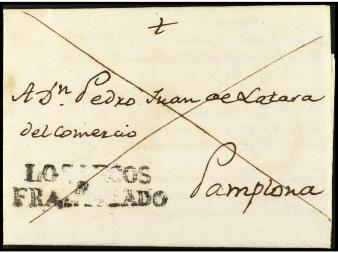 A Dn. Pedro Juan de Latasa
del Comercio
Pamplona
LOS ARCOS
FRANQUEADO